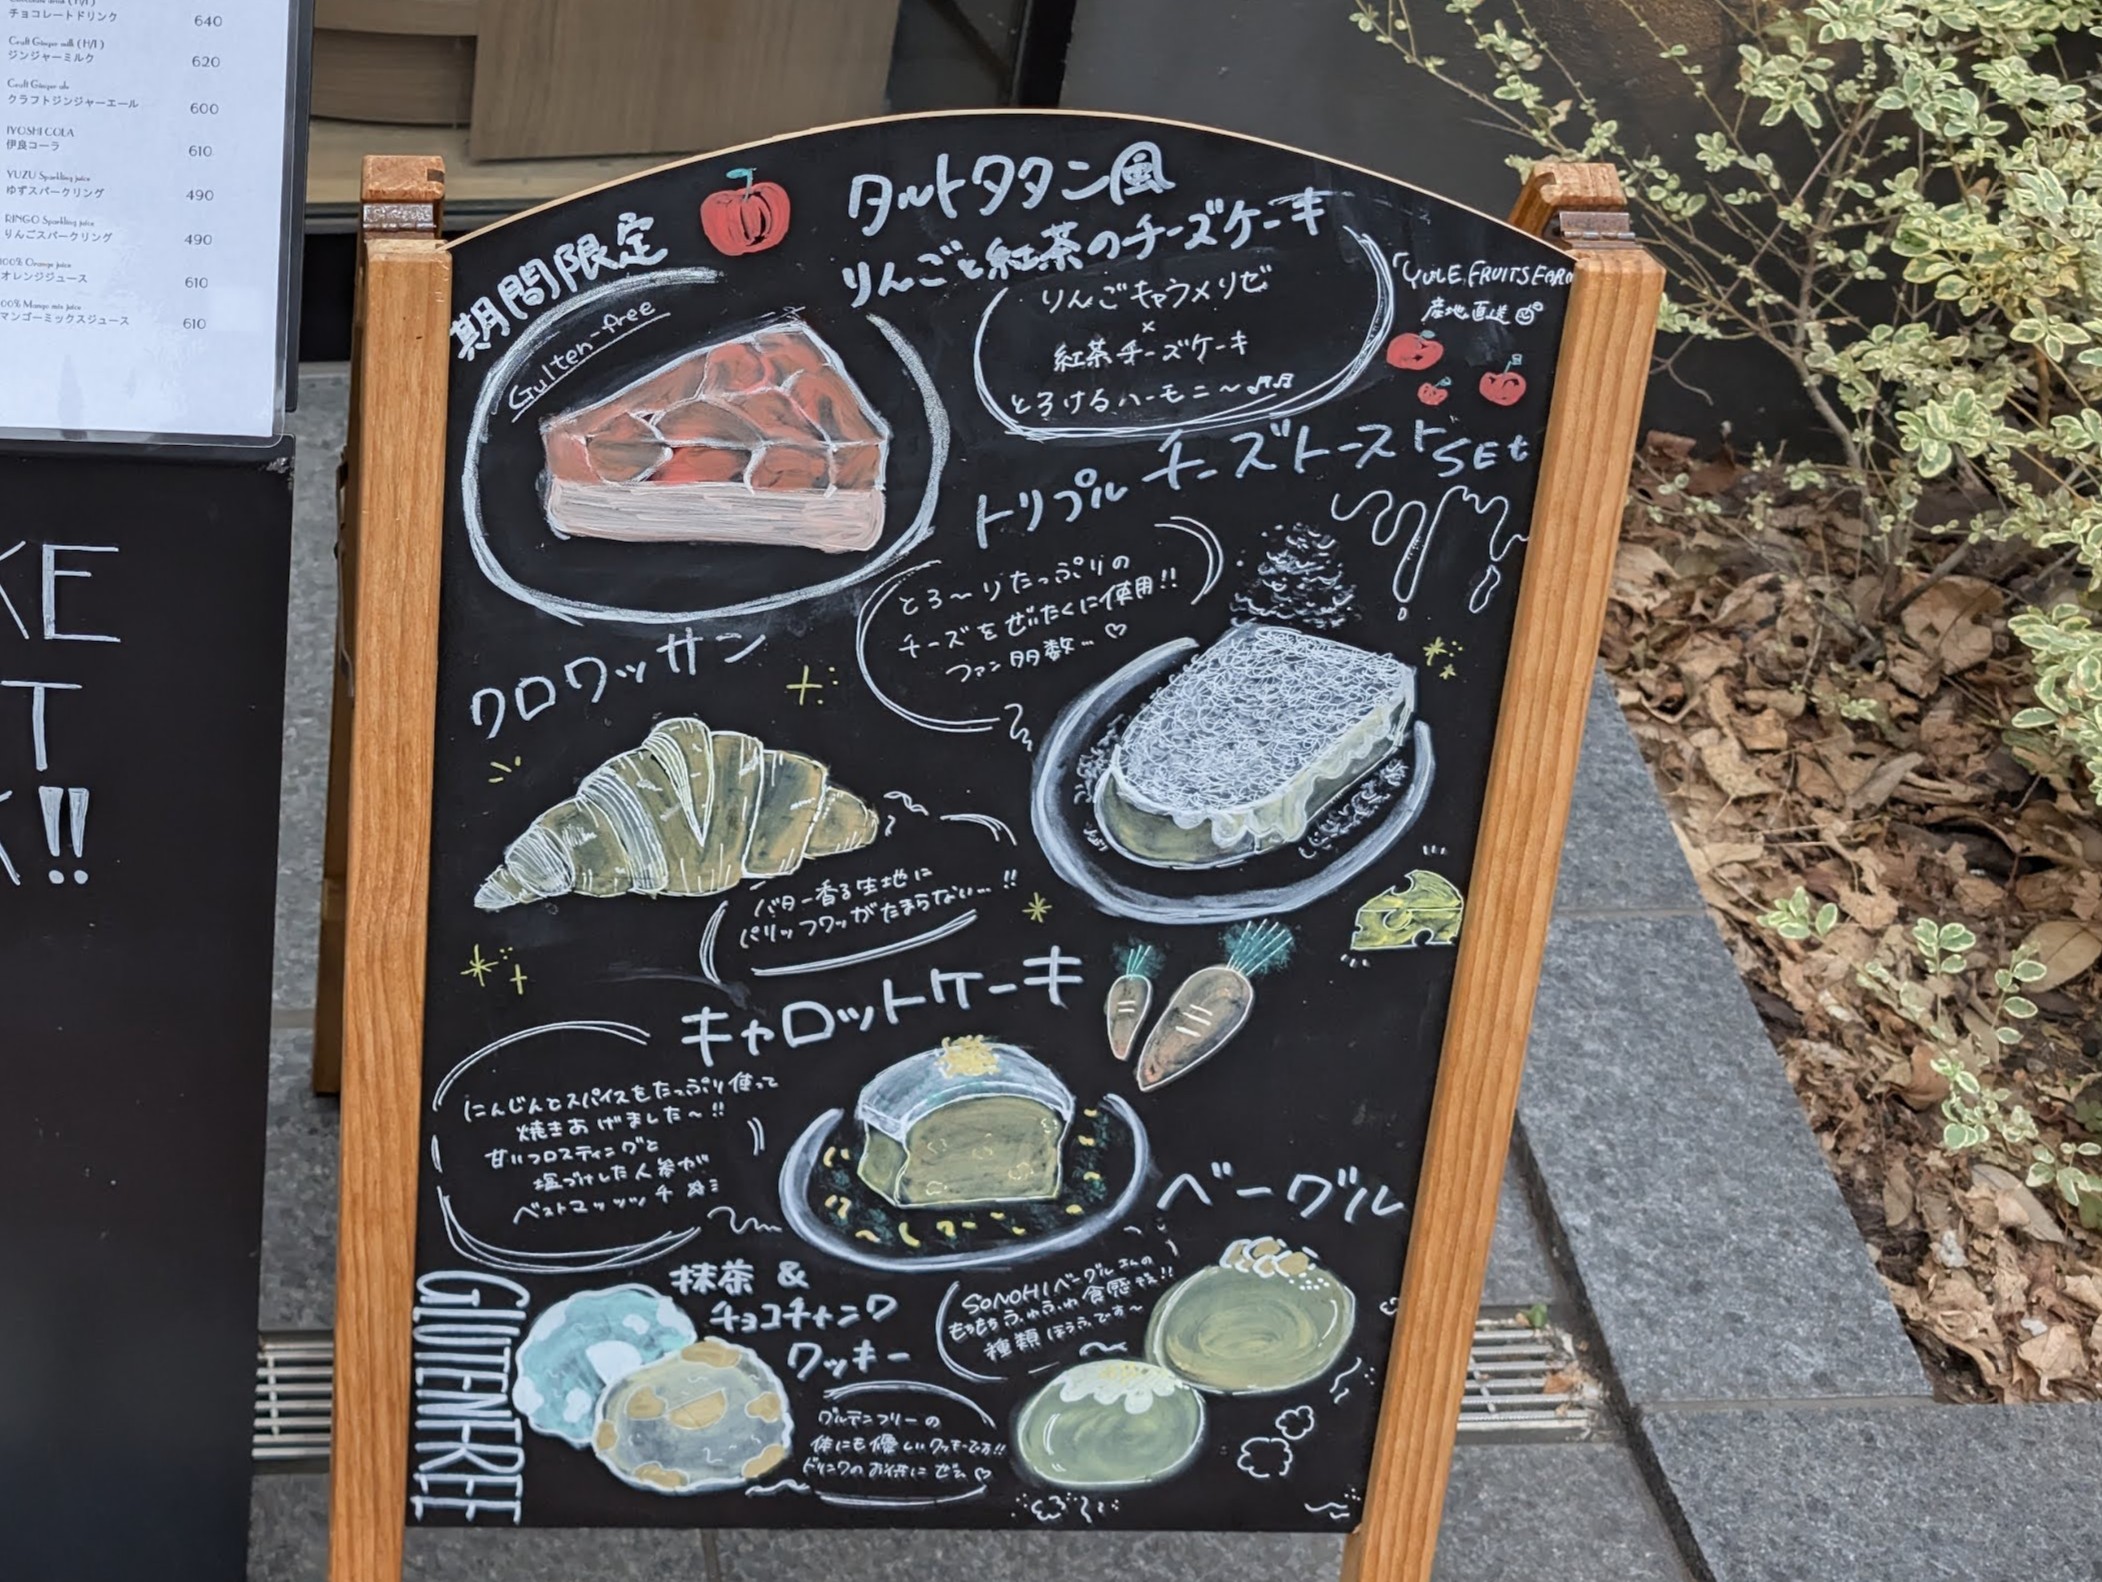 チョコレートドリンク 640
Craft Ginger milk (H/I)
ジンジャーミルク 620
Craft Ginger ale
クラフトジンジャーエール 600
IYOSHI COLA
伊良コーラ 610
YUZU Sparkling juice
ゆずスパークリング 490
RINGO Sparkling juice
りんごスパークリング 490
100% Orange juice
オレンジジュース 610
100% Mango mix juice
マンゴーミックスジュース 610
KE
T
K!!
期間限定
タルトタタン風
りんごと紅茶のチーズケーキ
Gulten-free
りんごキャラメリゼ
×
紅茶チーズケーキ
とろけるハーモニ〜♬♬
YULE FRUITS FARM
産地直送
トリプルチーズトーストSEt
とろ〜りたっぷりの
チーズをぜいたくに使用!!
ファン多数...♡
クロワッサン
バター香る生地に
パリッフワッがたまらない...!!
キャロットケーキ
にんじんとスパイスをたっぷり使って
焼きあげました〜!!
甘いフロスティングと
塩づけした人参が
ベストマッッッチ
ベーグル
SONOHIベーグルさんの
もちもちふわふわ食感です!!
種類ほうふです〜
抹茶 &
チョコチャンク
クッキー
GLUTENFREE
グルテンフリーの
体にも優しいクッキーです!!
ドリンクのお供にぜひ♡